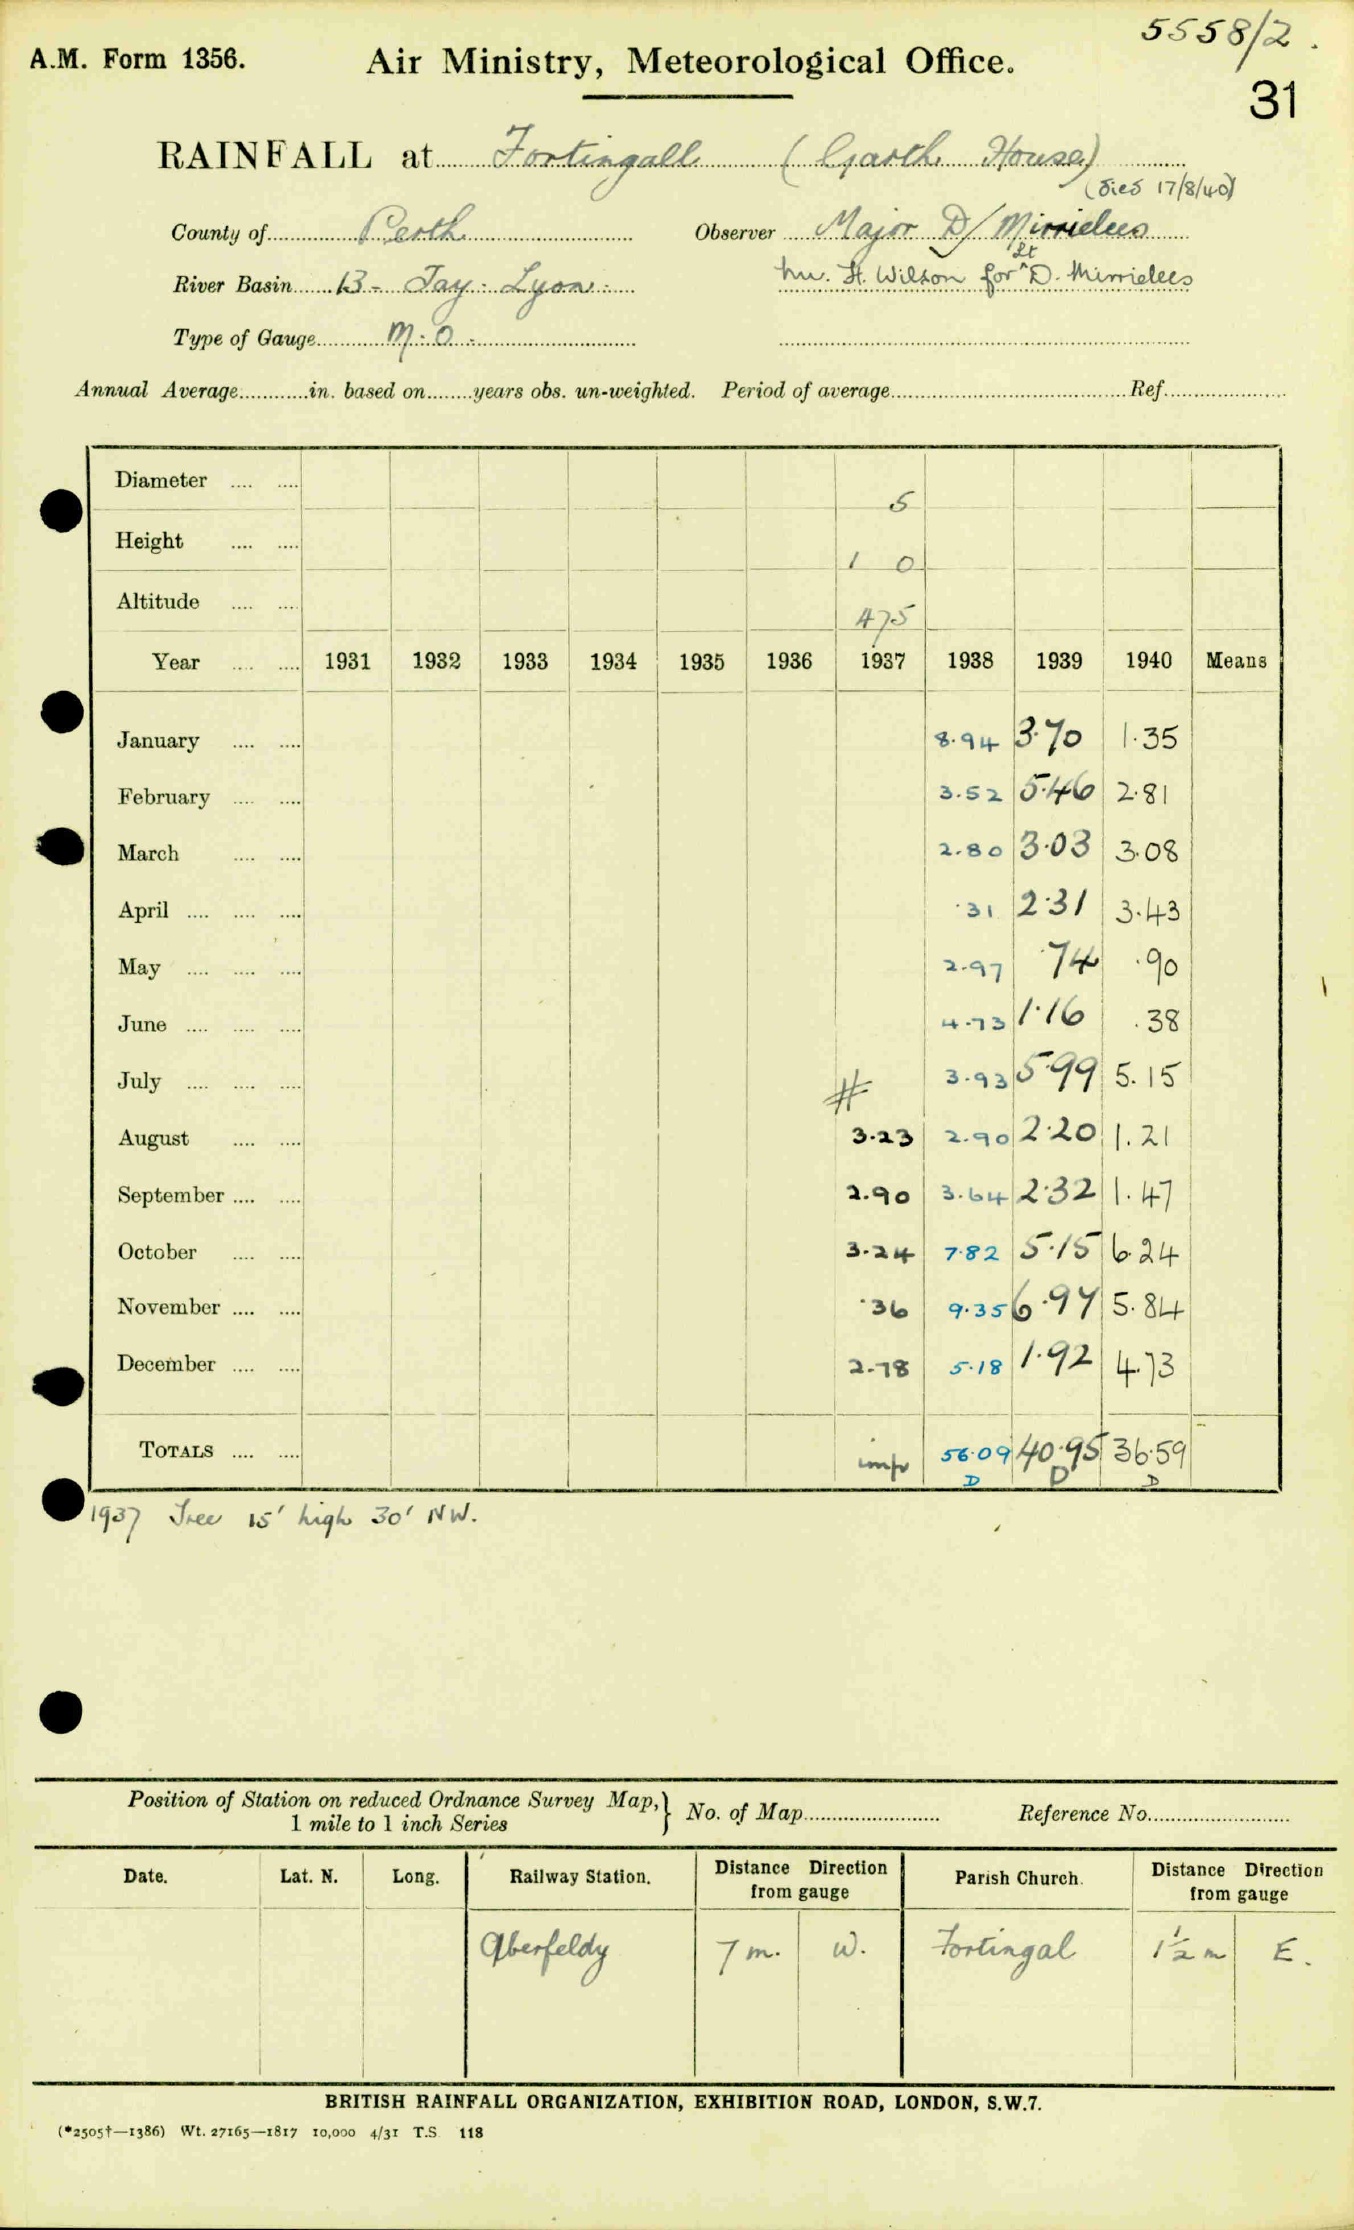 5558/2.
A.M. Form 1356. Air Ministry, Meteorological Office.
31
RAINFALL at Fortingall (Garth House)
(Died 17/8/40)
County of Perth Observer Major D Mirrielees
River Basin 13 - Tay. Lyon. H. Wilson for Lt D. Mirrielees
Type of Gauge M.O.
Annual Average in. based on years obs. un-weighted. Period of average Ref.
Diameter 5
Height 1 0
Altitude 475
Year 1931 1932 1933 1934 1935 1936 1937 1938 1939 1940 Means
January 8.94 3.70 1.35
February 3.52 5.46 2.81
March 2.80 3.03 3.08
April .31 2.31 3.43
May 2.97 .74 .90
June 4.73 1.16 .38
July # 3.93 5.99 5.15
August 3.23 2.90 2.20 1.21
September 2.90 3.64 2.32 1.47
October 3.24 7.82 5.15 6.24
November .36 9.35 6.97 5.84
December 2.78 5.18 1.92 4.73
TOTALS imp 56.09 40.95 36.59
D D D
1937 Tree 15' high 30' NW.
Position of Station on reduced Ordnance Survey Map, } No. of Map Reference No.
1 mile to 1 inch Series
Date. Lat. N. Long. Railway Station. Distance Direction from gauge Parish Church. Distance Direction from gauge
Aberfeldy 7 m. W. Fortingal 1½ m E.
BRITISH RAINFALL ORGANIZATION, EXHIBITION ROAD, LONDON, S.W.7.
(*2505†—1386) Wt. 27165—1817 10,000 4/31 T.S. 118